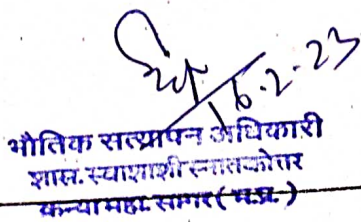 16.2.23
भौतिक सत्यापन अधिकारी
शास. स्वाशाशी स्नातकोत्तर
कन्या महा. सागर (म.प्र.)